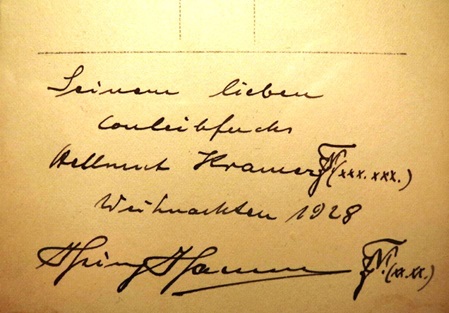 Seinem lieben
Conleibfuchs
Hellmut Kramer (xxx.xxx.)
Weihnachten 1928
Heinz Hamm (xx.xx.)